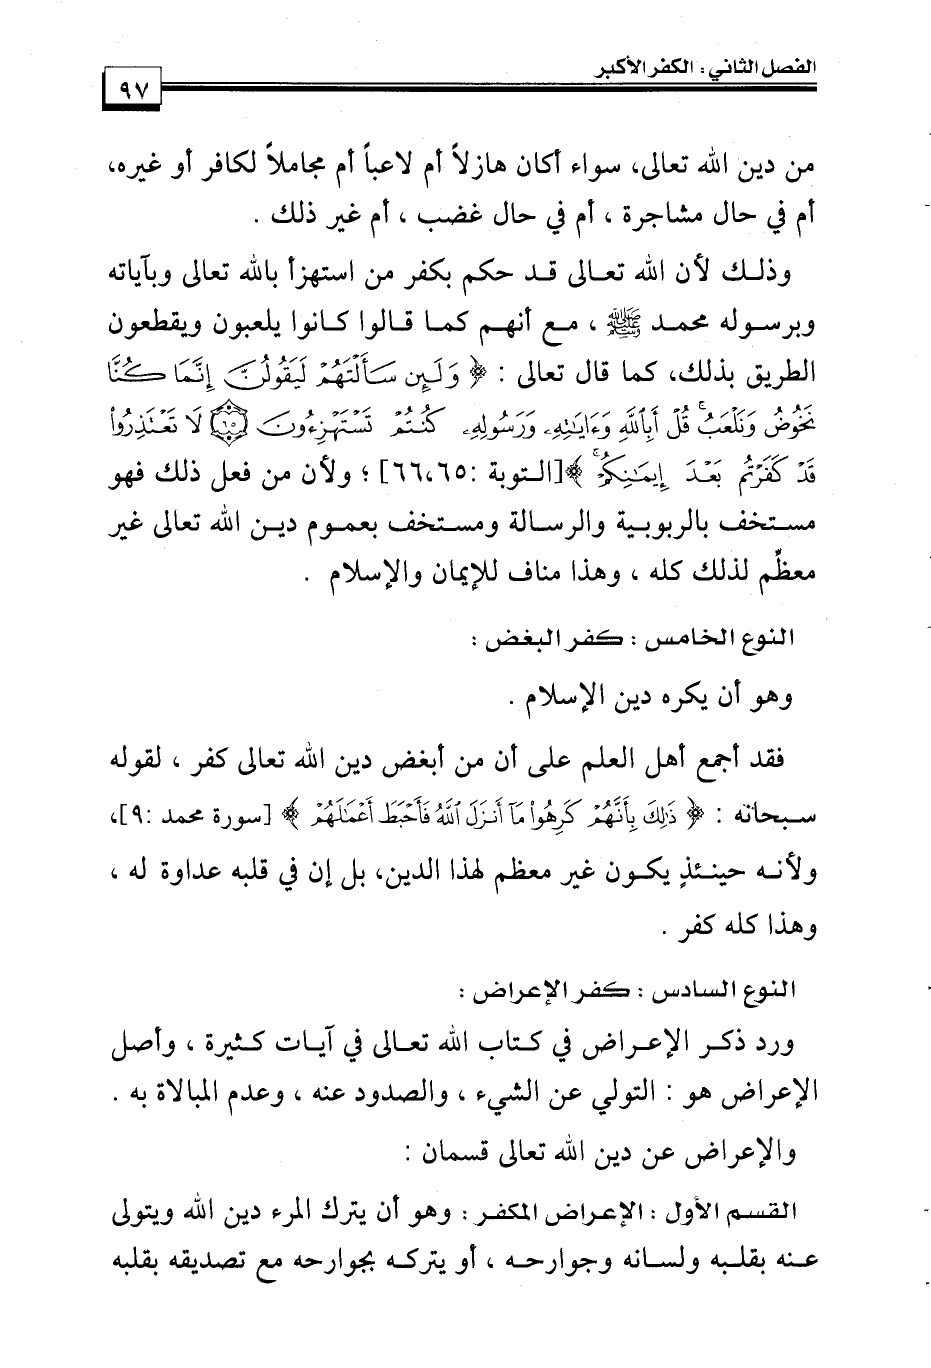 الفصل الثاني : الكفر الأكبر
٩٧
من دين الله تعالى، سواء أكان هازلاً أم لاعباً أم مجاملاً لكافر أو غيره،
أم في حال مشاجرة ، أم في حال غضب ، أم غير ذلك .
وذلك لأن الله تعالى قد حكم بكفر من استهزأ بالله تعالى وبآياته
وبرسوله محمد ﷺ ، مع أنهم كما قالوا كانوا يلعبون ويقطعون
الطريق بذلك، كما قال تعالى : ﴿ وَلَئِن سَأَلْتَهُمْ لَيَقُولُنَّ إِنَّمَا كُنَّا
نَخُوضُ وَنَلْعَبُ ۚ قُلْ أَبِاللَّهِ وَءَايَٰتِهِۦ وَرَسُولِهِۦ كُنتُمْ تَسْتَهْزِءُونَ ۝٦٥ لَا تَعْتَذِرُوا۟
قَدْ كَفَرْتُم بَعْدَ إِيمَٰنِكُمْ ۚ ﴾[التوبة :٦٦،٦٥] ؛ ولأن من فعل ذلك فهو
مستخف بالربوبية والرسالة ومستخف بعموم دين الله تعالى غير
معظِّم لذلك كله ، وهذا مناف للإيمان والإسلام .
النوع الخامس : كفر البغض :
وهو أن يكره دين الإسلام .
فقد أجمع أهل العلم على أن من أبغض دين الله تعالى كفر ، لقوله
سبحانه : ﴿ ذَٰلِكَ بِأَنَّهُمْ كَرِهُوا۟ مَآ أَنزَلَ ٱللَّهُ فَأَحْبَطَ أَعْمَٰلَهُمْ ﴾ [سورة محمد :٩]،
ولأنه حينئذٍ يكون غير معظم لهذا الدين، بل إن في قلبه عداوة له ،
وهذا كله كفر .
النوع السادس : كفر الإعراض :
ورد ذكر الإعراض في كتاب الله تعالى في آيات كثيرة ، وأصل
الإعراض هو : التولي عن الشيء ، والصدود عنه ، وعدم المبالاة به .
والإعراض عن دين الله تعالى قسمان :
القسم الأول : الإعراض المكفر : وهو أن يترك المرء دين الله ويتولى
عنه بقلبه ولسانه وجوارحه ، أو يتركه بجوارحه مع تصديقه بقلبه